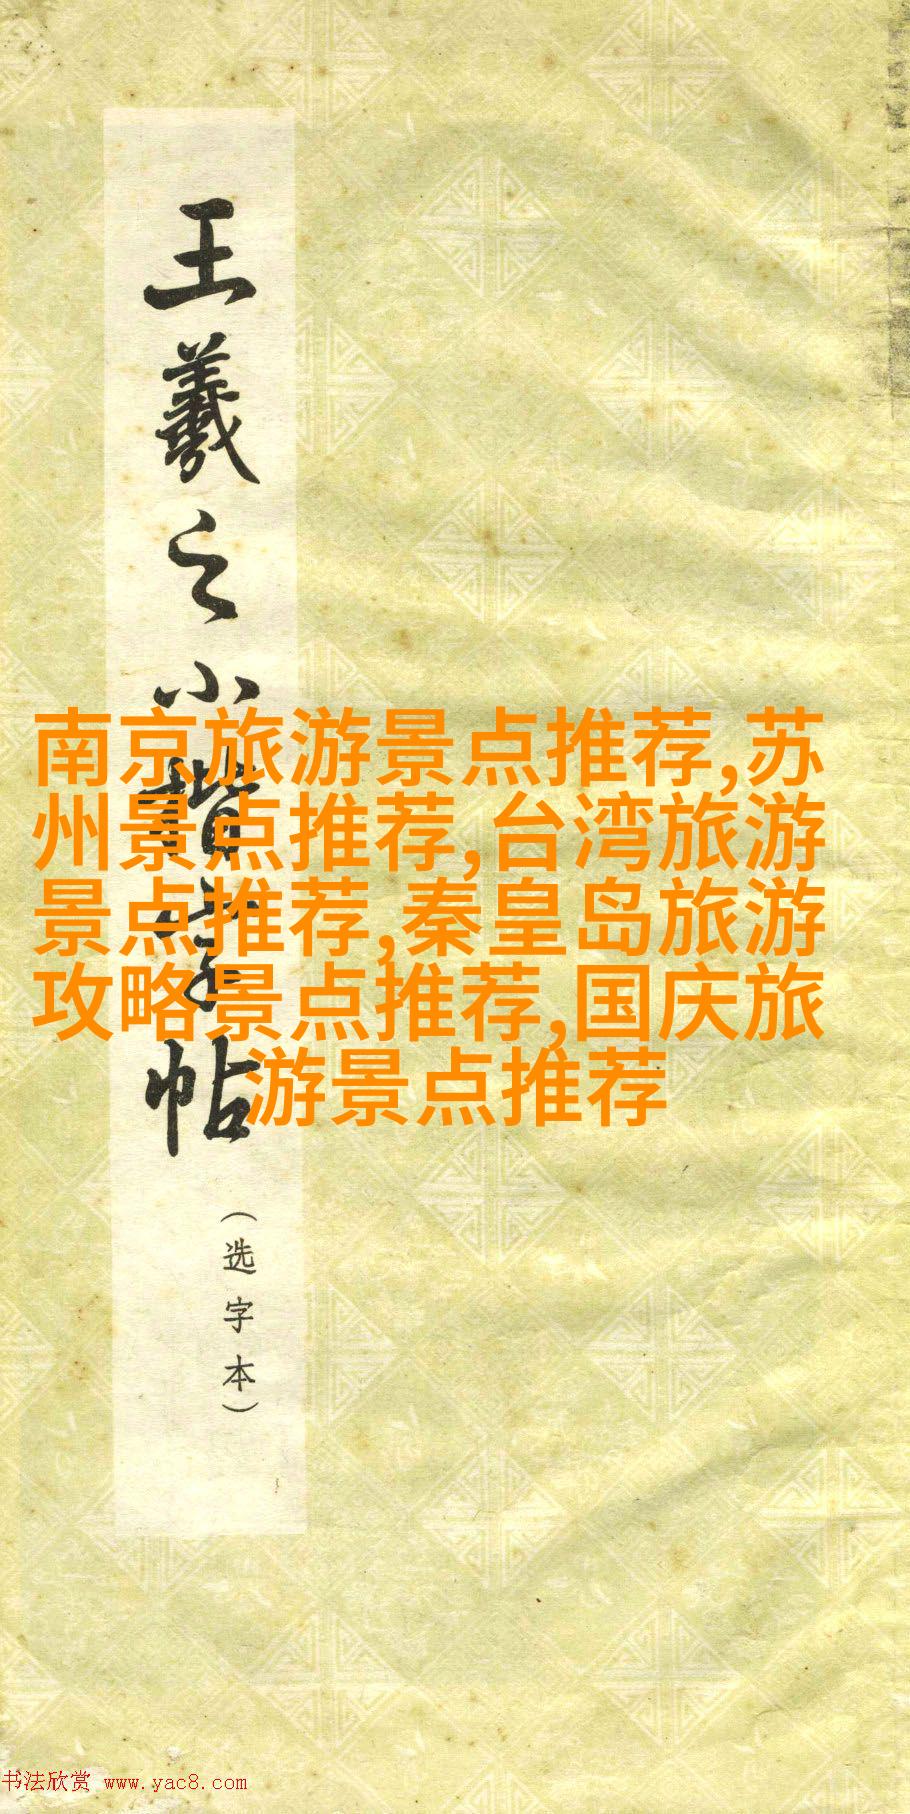 王羲之小楷字帖
（选字本）
南京旅游景点推荐,苏
州景点推荐,台湾旅游
景点推荐,秦皇岛旅游
攻略景点推荐,国庆旅
游景点推荐
书法欣赏 www.yac8.com